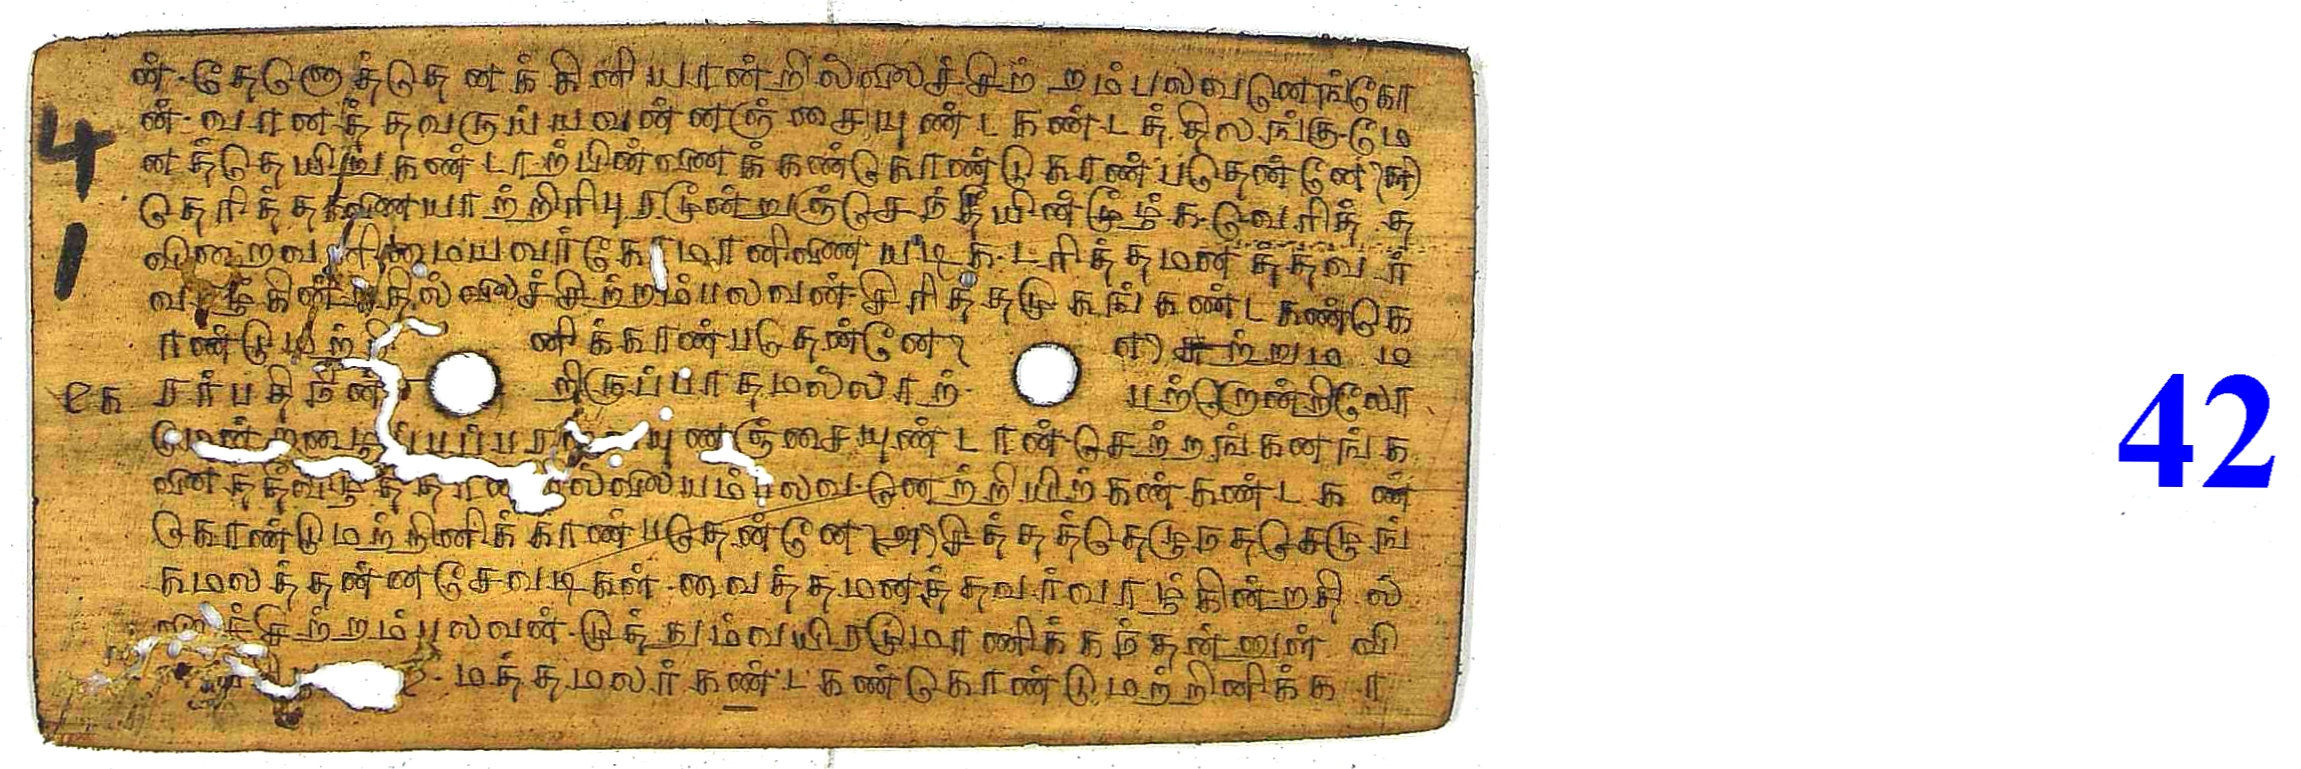 ன்-தேனொத்தெனக்கினியான்றில்லைச்சிற்றம்பலவனெங்கோ
ன்-வானத்தவருய்யவன்னஞ்சையுண்டகண்டத்திலங்குமே
னத்தெயிறுகண்டாற்பின்னைக்கண்கொண்டுகாண்பதென்னே
தெரித்தகணையாற்றிரிபுரமூன்றுஞ்செந்தீயின்மூழ்க-வெரித்த
விறைவனிமையவர்கோமானிணையடிக-டரித்தமனத்தவர்
வாழ்கின்றதில்லைச்சிற்றம்பலவன்-சிரித்தமுகங்கண்டகண்கொ
ண்டுமற்றினிக்காண்பதென்னே எ சுற்றும
மரர்பதிநின் றிருப்பாதமல்லாற்- பற்றொன்றிலோ
மென்றழைப்பப்பரவையுணஞ்சையுண்டான்செற்றங்கனங்க
னைத்தீவிழித்தான்றில்லையம்பலவ-னெற்றியிற்கண்கண்டகண்
கொண்டுமற்றினிக்காண்பதென்னே அ சித்தத்தெழுந்தசெழுங்
கமலத்தன்னசேவடிகள்-வைத்தமனத்தவர்வாழ்கின்றதில்
லைச்சிற்றம்பலவன்-முத்தும்வயிரமுமாணிக்கந்தன்னுள் வி
மத்தமலர்கண்டகண்கொண்டுமற்றினிக்கா
கூ
41
42